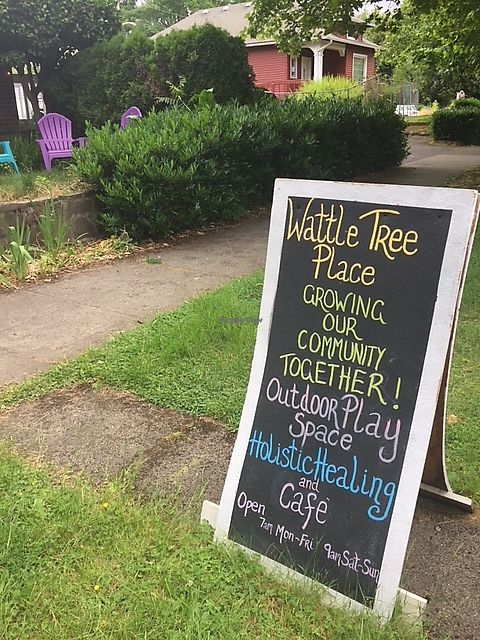 Wattle Tree
Place
GROWING
OUR
COMMUNITY
TOGETHER!
Outdoor Play
Space
Holistic Healing
and
Cafè
Open
7am Mon-Fri 9am Sat-Sun